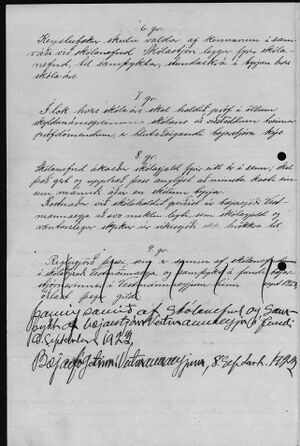 6. gr.
Kenslubækur skulu valdar af kennurum í sam-
ráði við skólanefnd. Skólastjóri leggur fyrir skóla-
nefnd, til samþykkta, stundaskrá í byrjun hvers
skólaárs.
7. gr.
Í lok hvers skólaárs skal haldið próf í öllum
skyldunámsgreinum skólans að viðstöddum tveimur
prófdómendum, er hlutaðeigandi bæjarstjórn kýs.
8. gr.
Skólanefnd ákveður skólagjald fyrir eitt ár í senn, skal
það gert og uppgefið það snemma að
um mánuði áður en skólinn byrjar.
Kostnaður við skólahaldið greiðist úr bæjarsjóði Vest-
mannaeyja að svo miklu leyti sem skólagjald og
væntanlegur styrkur úr ríkissjóði hrökkva til.
9. gr.
Reglugjörð þessi, sem er samin af skólanefnd
Vestmannaeyja og samþykkt á fundi bæjar-
stjórnarinnar í Vestmannaeyjum
öðlast þegar gildi.
þannig samið af skólanefnd og sam-
þykkt af bæjarstjórn Vestmannaeyja á fundi
September 1923
Bæjarfógetinn í Vestmannaeyjum, 8. Septbr. 1923